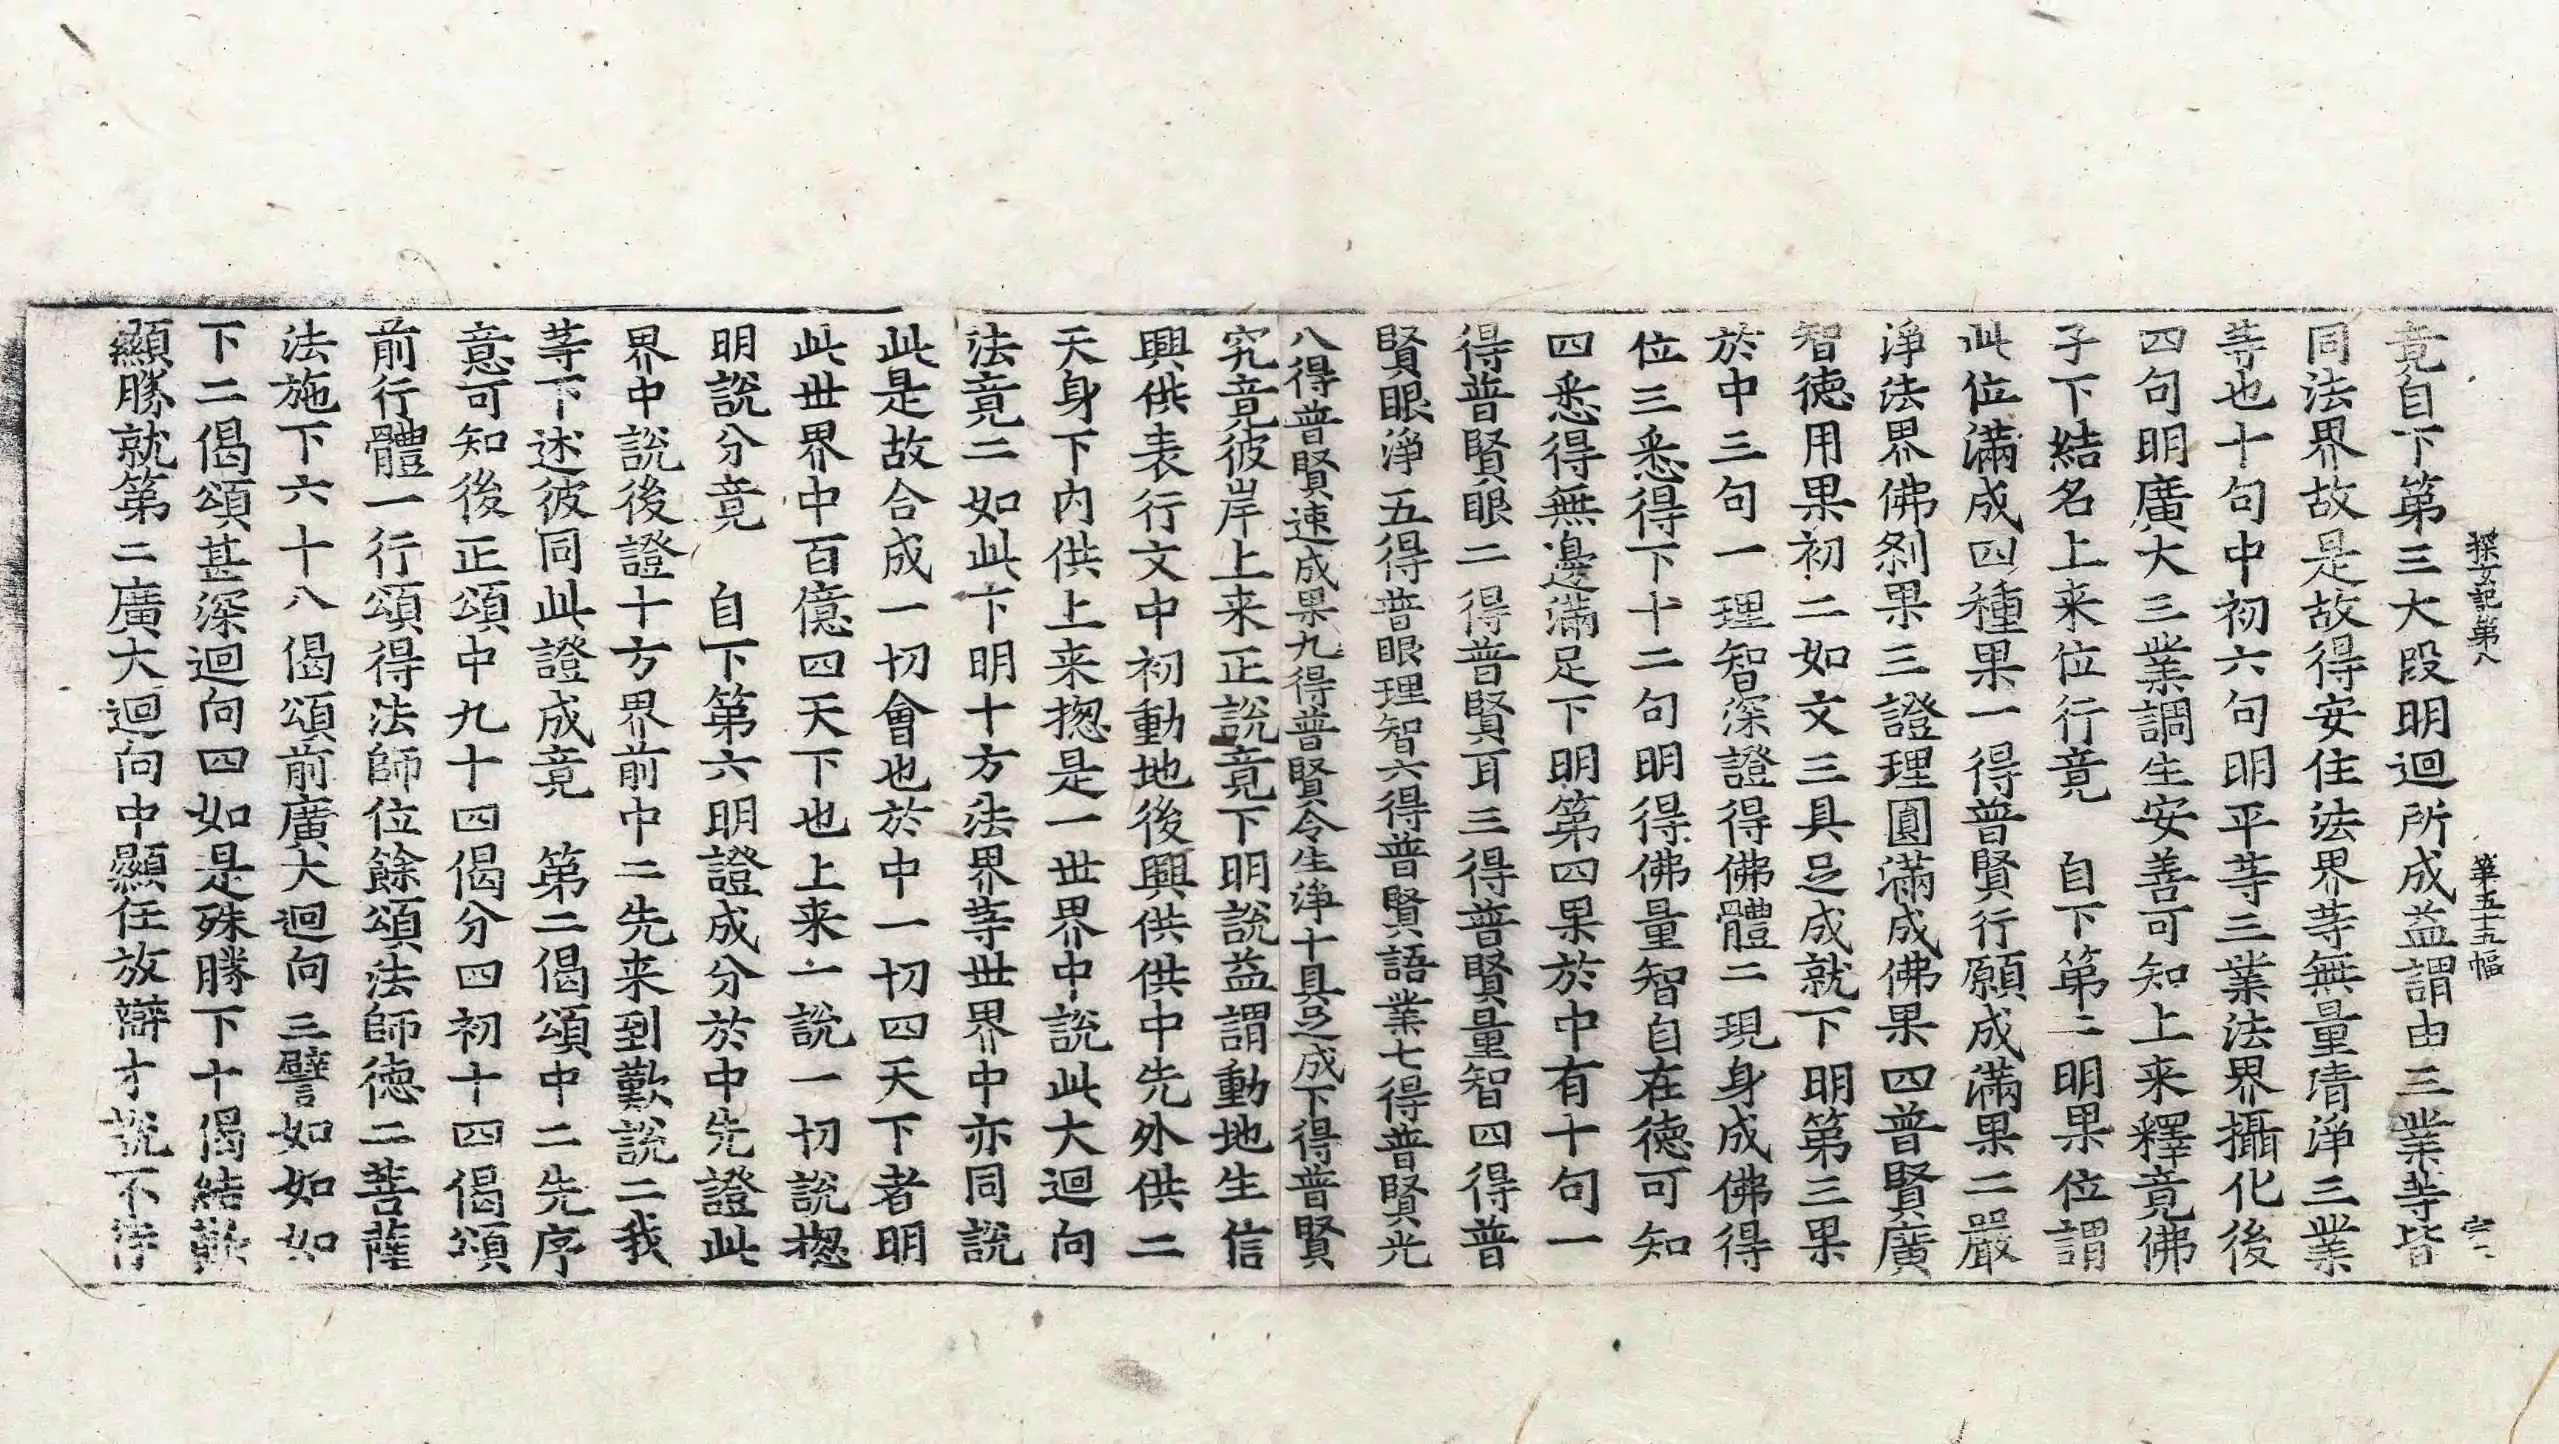 探玄記第八 華五 十五幅 宀二
竟自下第三大段明迴所成益謂由三業等皆
同法界故是故得安住法界等無量清淨三業
等也十句中初六句明平等三業法界攝化後
四句明廣大三業調生安善可知上来釋竟佛
子下結名上来位行竟 自下第二明果位謂
此位滿成四種果一得普賢行願成滿果二嚴
淨法界佛刹果三證理圓滿成佛果四普賢廣
智德用果初二如文三具足成就下明第三果
於中三句一理智深證得佛體二現身成佛得
位三悉得下十二句明得佛量智自在德可知
四悉得無邊滿足下明第四果於中有十句一
得普賢眼二得普賢耳三得普賢量智四得普
賢眼淨五得普眼理智六得普賢語業七得普賢光
八得普賢速成果九得普賢令生淨十具足成下得普賢
究竟彼岸上来正說竟下明說益謂動地生信
興供表行文中初動地後興供供中先外供二
天身下内供上来揔是一世界中說此大迴向
法竟二如此下明十方法界等世界中亦同說
此是故合成一切會也於中一切四天下者明
此世界中百億四天下也上来一說一切說揔
明說分竟 自下第六明證成分於中先證此
界中說後證十方界前中二先来到歎說二我
等下述彼同此證成竟 第二偈頌中二先序
意可知後正頌中九十四偈分四初十四偈頌
前行體一行頌得法師位餘頌法師德二菩薩
法施下六十八偈頌前廣大迴向三譬如如如
下二偈頌甚深迴向四如是殊勝下十偈結歎
顯勝就第二廣大迴向中顯任放辯才說不待